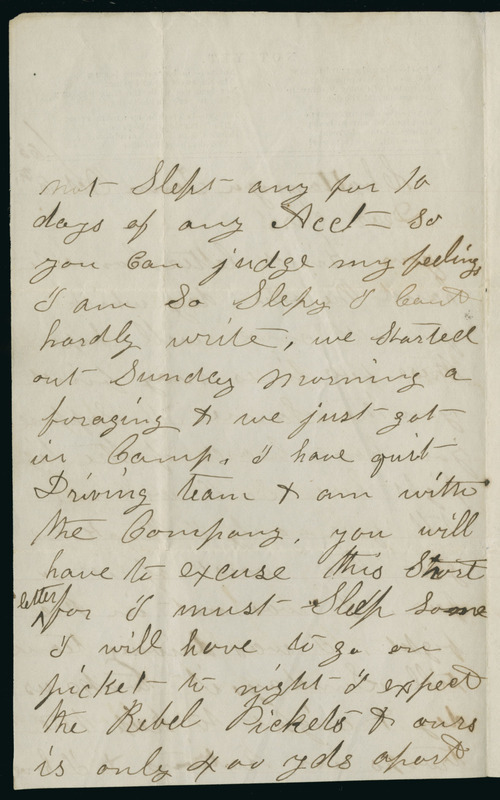 not Slept any for 10
days of any Acct - So
you Can judge my feelings
I am So Slepy I Cant
hardly write, we Started
out Sunday Morning a
foraging & we just got
in Camp, I have quit
Driving team & am with
the Company, you will
have to excuse this Short
letter for I must Sleep Some
I will have to go on
picket to night I expect
the Rebel Pickets & ours
is only 400 yds apart